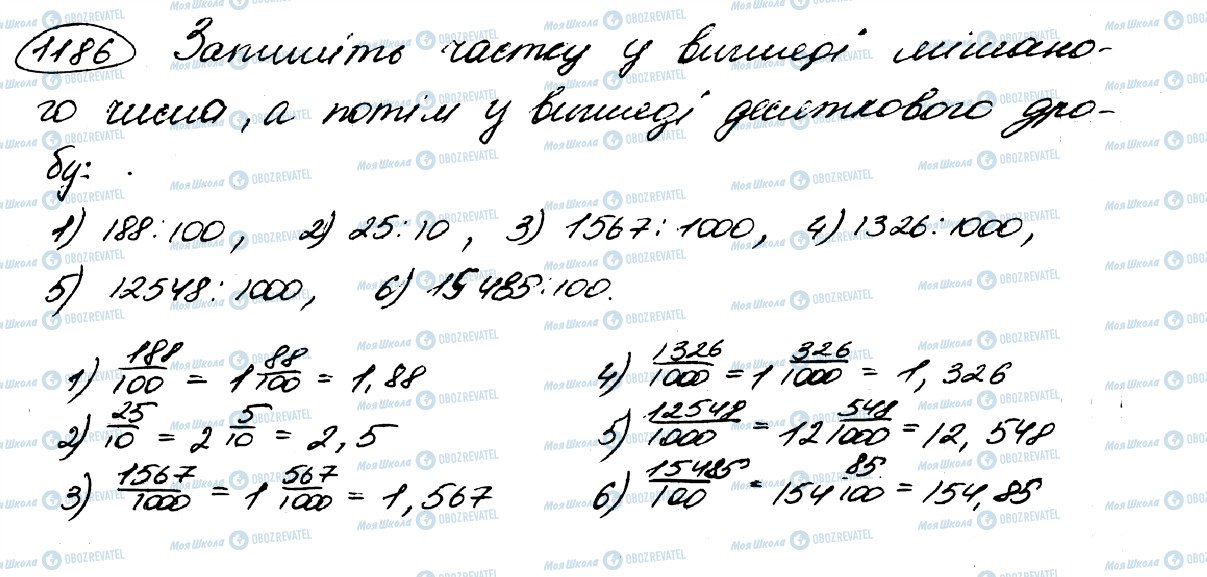 1186 Запишіть частку у вигляді мішано-
го числа, а потім у вигляді десяткового дро-
бу:
1) 188:100, 2) 25:10, 3) 1567:1000, 4) 1326:1000,
5) 12548:1000, 6) 15485:100.
1) 188/100 = 1 88/100 = 1,88
2) 25/10 = 2 5/10 = 2,5
3) 1567/1000 = 1 567/1000 = 1,567
4) 1326/1000 = 1 326/1000 = 1,326
5) 12548/1000 = 12 548/1000 = 12,548
6) 15485/100 = 154 85/100 = 154,85
МояШкола OBOZREVATEL